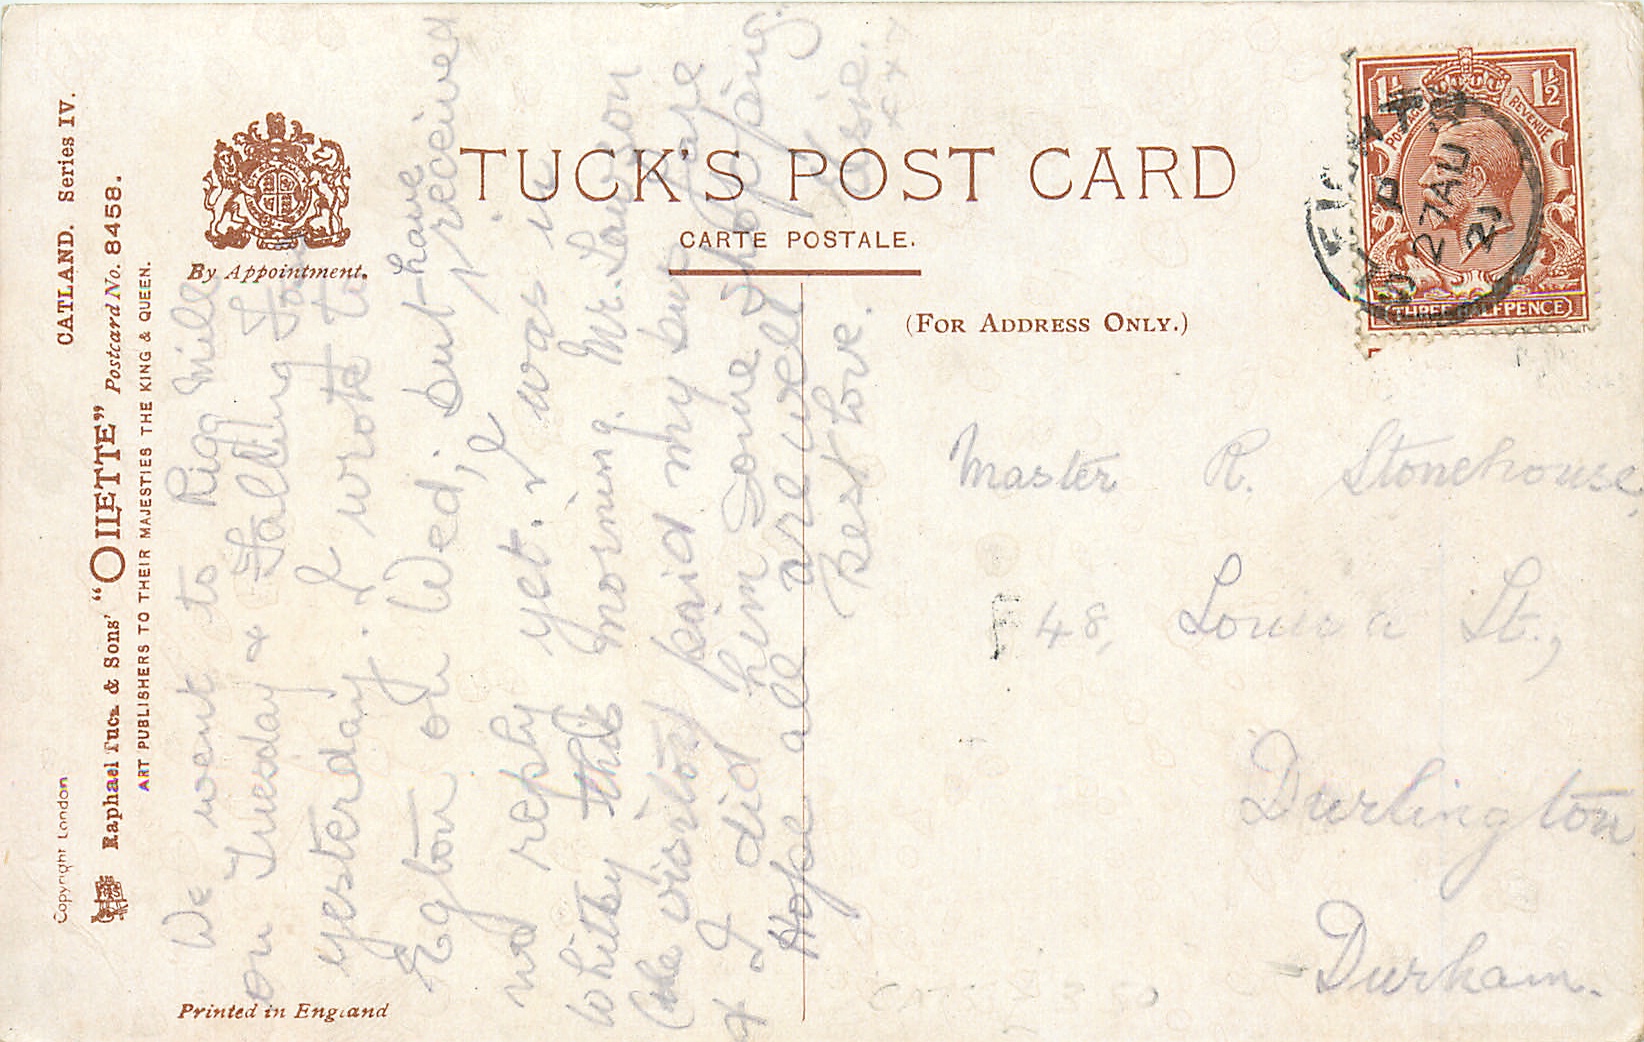 CATLAND. Series IV.
Copyright London
Raphael Tuck & Sons' "OILETTE" Postcard No. 8458.
ART PUBLISHERS TO THEIR MAJESTIES THE KING & QUEEN.
By Appointment.
Printed in England
TUCK'S POST CARD
CARTE POSTALE.
(FOR ADDRESS ONLY.)
POSTAGE REVENUE
1½ 1½
THREE HALFPENCE
27 AU
21
We went to Rigg Mill
on Tuesday & Falling Foss
yesterday. I wrote to
Egton on Wed; but have
no reply yet. I received
I was in
Whitby this morning. Mr. Lawson
(the visitor) paid my bus fare
& I did him some shopping.
Hope all are well
Best love.
Elsie.
x x x
Master R. Stonehouse,
48, Louisa St.,
Darlington
Durham.